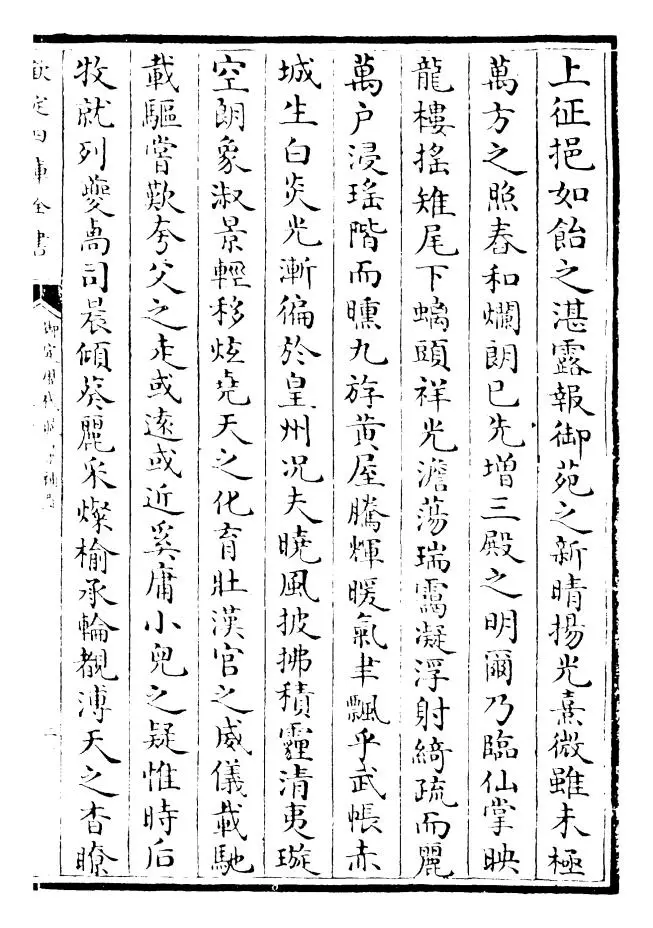 上征挹如飴之湛露報御苑之新晴揚光熹微雖未極
萬方之照春和爛朗已先增三殿之明爾乃臨仙掌映
龍樓搖雉尾下螭頭祥光澹蕩瑞靄凝浮射綺疏而麗
萬户浸瑤階而曛九斿黄屋騰輝暖氣聿飄乎武帳赤
城生白炎光漸徧於皇州况夫曉風披拂積霾清夷璇
空朗象淑景輕移炫堯天之化育壯漢官之威儀載馳
載驅嘗歎夸父之走或遠或近奚庸小兒之疑惟時后
牧就列夔卨司晨傾葵麗采燦榆承輪覩溥天之杳暸
欽定四庫全書
御定歴代賦